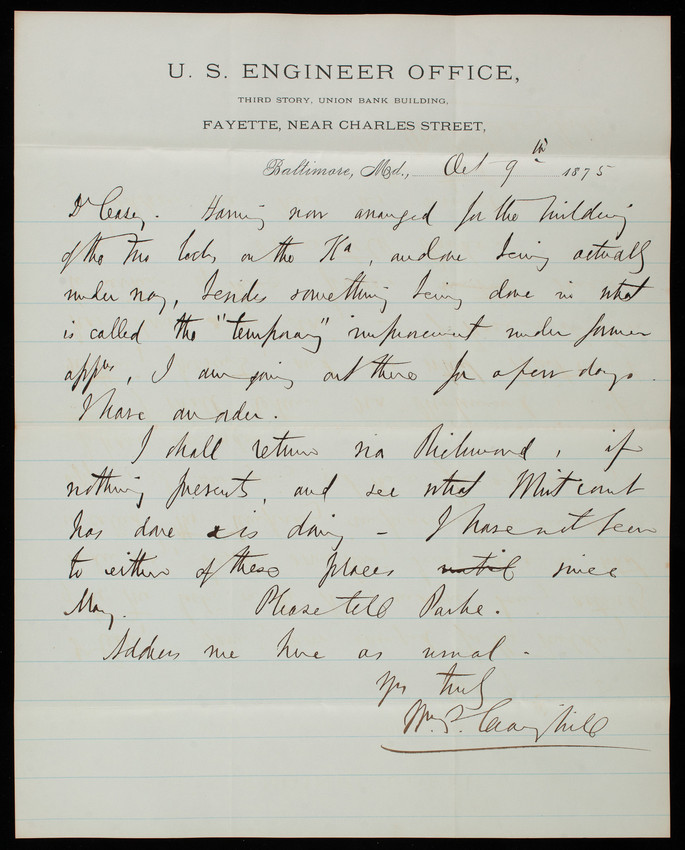 U. S. ENGINEER OFFICE,
THIRD STORY, UNION BANK BUILDING,
FAYETTE, NEAR CHARLES STREET,
Baltimore, Md., Oct 9th 1875
Dr Casey. Having now arranged for the building
of the two locks on the Ka, and one being actually
under way, besides something being done in what
is called the "temporary" improvement under former
apprs, I am going out there for a few days.
I have an order.
I shall return via Richmond, if
nothing prevents, and see what
has done & is doing - I have not been
to either of these places until since
May. Please tell Parke.
Address me here as usual -
Yrs truly
Wm. P. Craighill